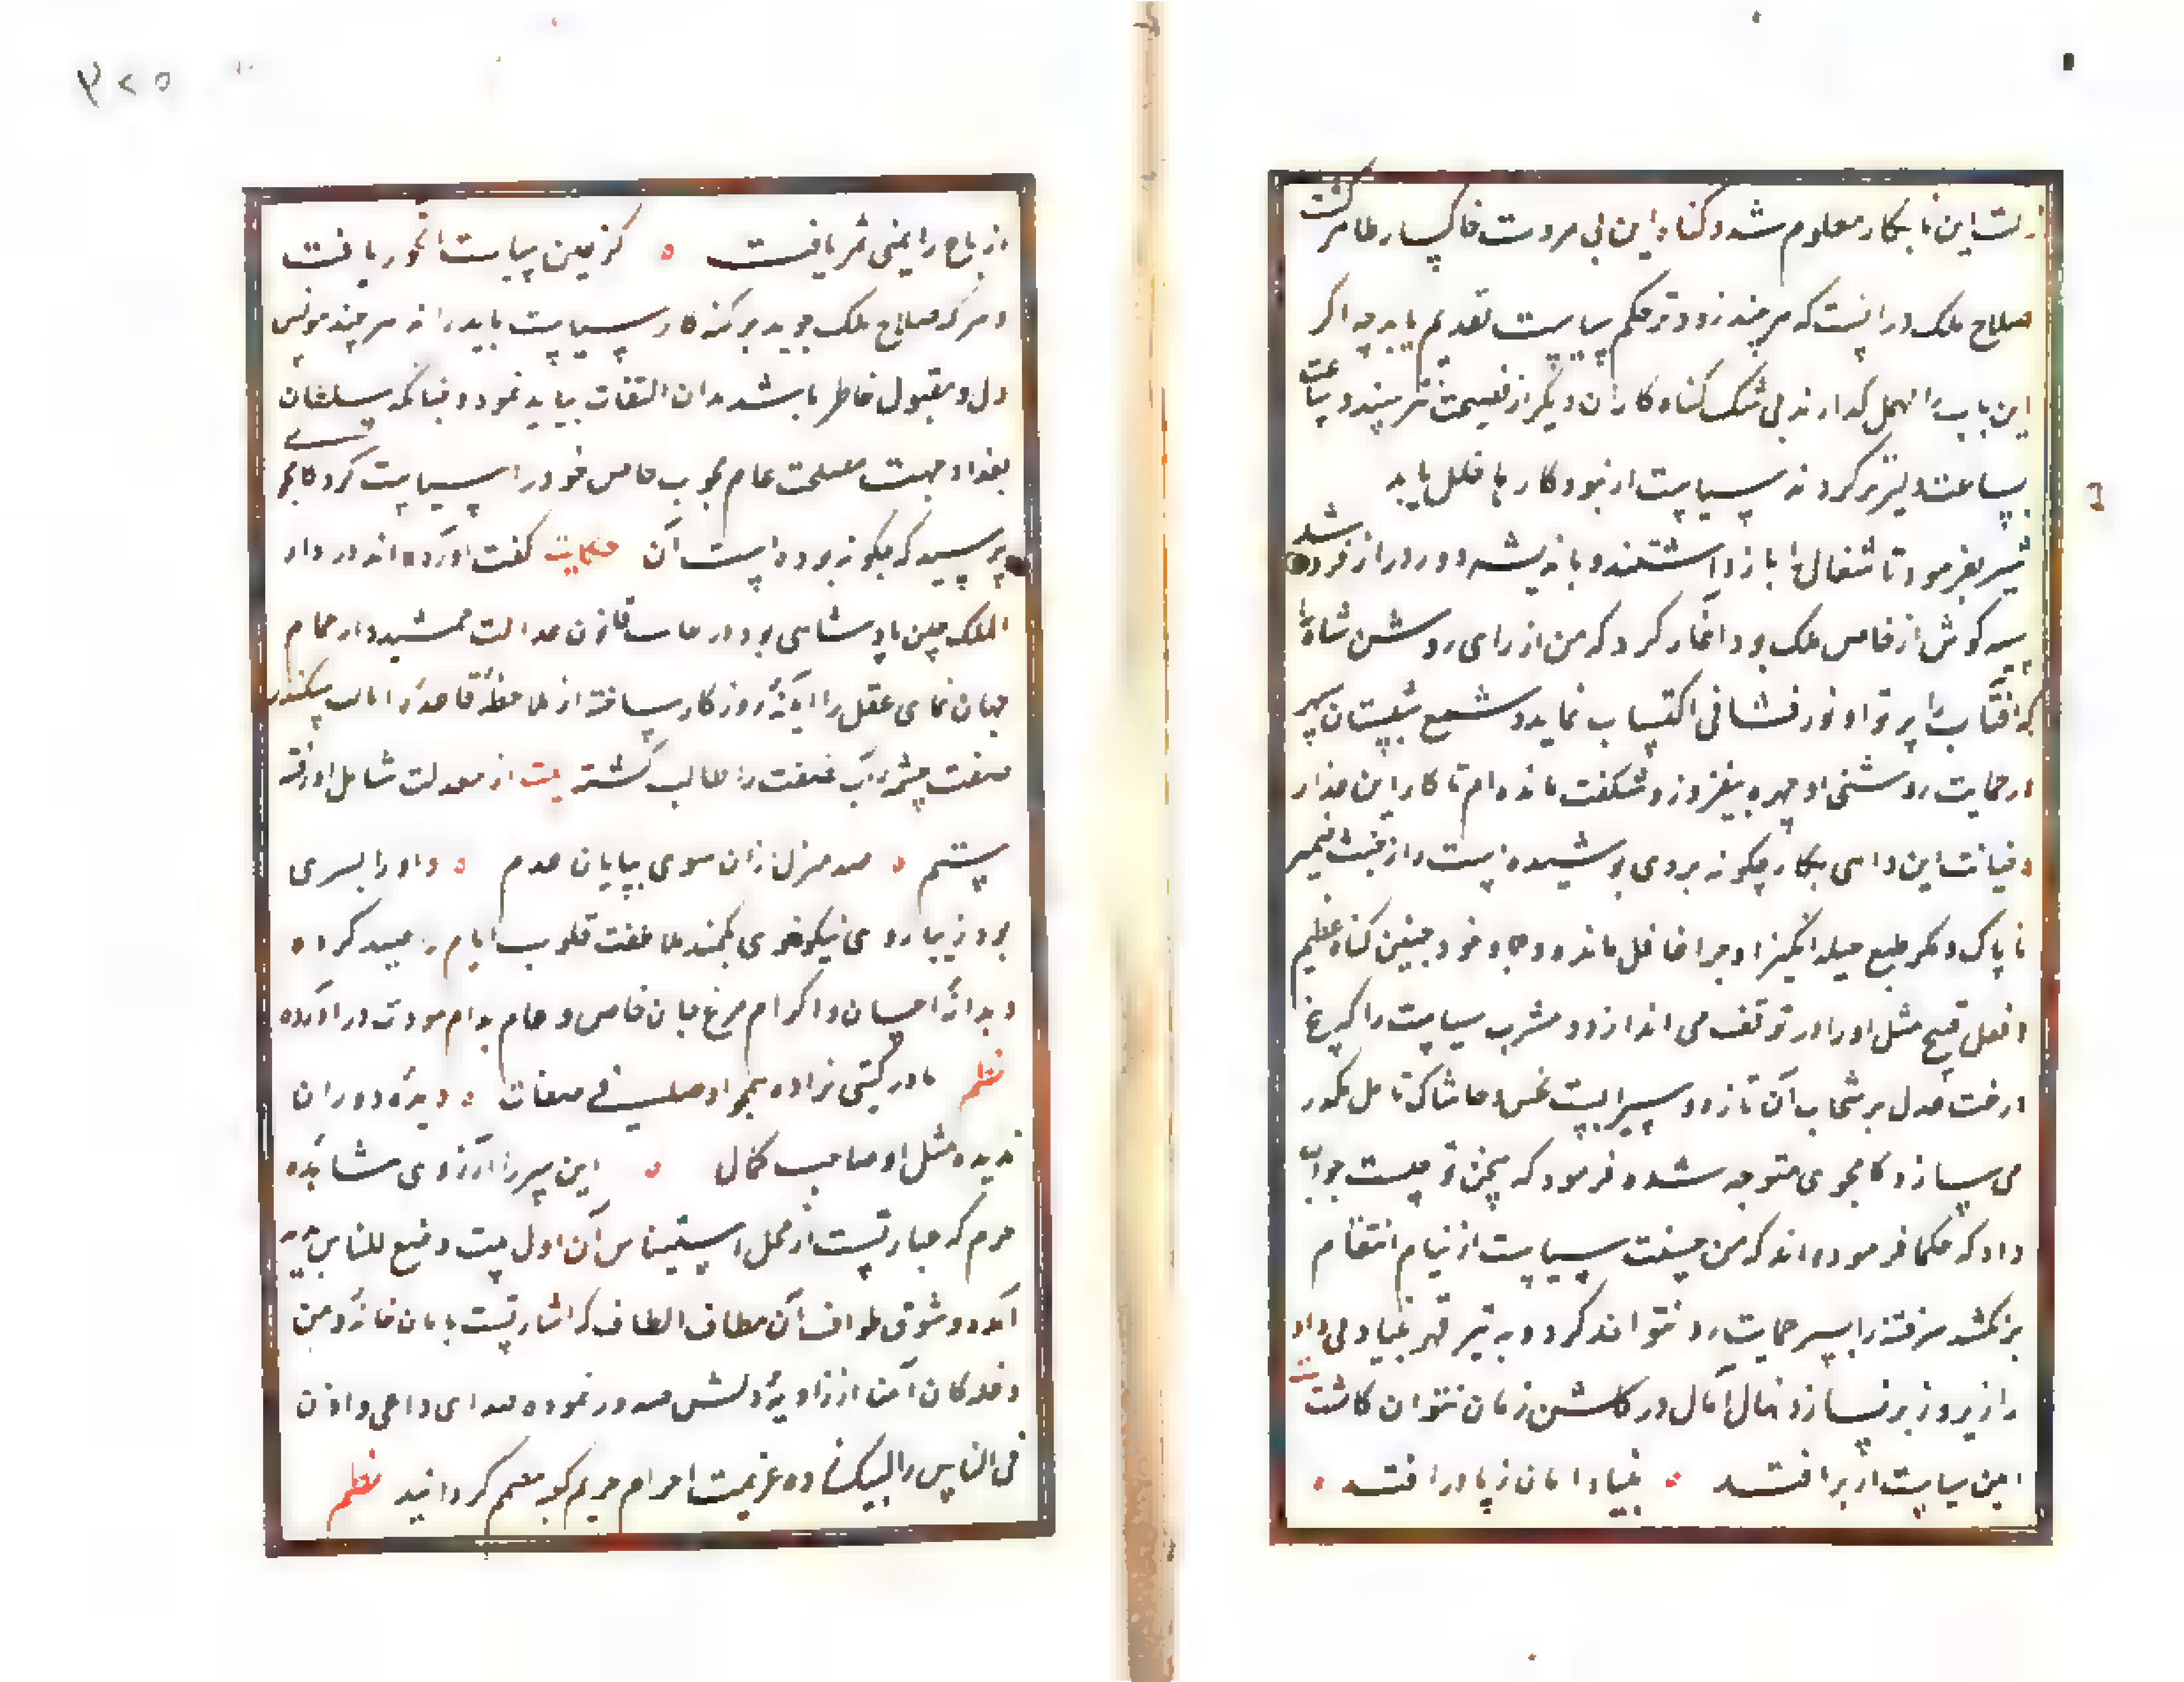 زلت این نابکار معلوم شد و کناه این بی مروت خاکسار ظاهر کشت
صلاح ملک در انست که هر چند زودتر حکم سیاست تقدیم یابد چه اکر
این باب را مهمل کذارند بی شک کناه کاران دیکر از فضیحت نترسند و ساعت
بساعت دلیرتر کردند سیاست ار نبود کارها خلل یابد
شیر بفرمود تا شغال را باز داشتند و باندیشه دور دراز فرو شد
سیه کوش از خاص ملک بود اغاز کرد که من از رای روشن شاه
که افتاب را پرتو او نور فشانی اکتساب نماید و شمع شبستان سپهر
در حمایت روشنی او چهره بیفروزد شکفت مانده ام تا کار این غدار
و خیانت این داهی بکار چکونه بر وی پوشیده است و از خبث ضمیر
ناپاک و مکر طبع حیله انکیز او چرا غافل مانده و با وجود چنین کناه عظیم
و فعل قبیح مثل او را در توقف می اندازد و مشرب سیاست را که مرغ
درخت عدل برشحات آن تازه و سیرابست بخس و خاشاک تامل مکدر
می سازد کامجوی متوجه شده فرمود که سخن تو چیست جواب
داد که حکما فرموده اند که من صفت سیاست از نیام انتقام
بر نکشد سر فتنه را بسپر حمایت رد نتواند کرد و به تیر قهر بنیاد بی داد
را زیر و زبر نسازد نهال آمال در کلشن زمان نتوان کاشت
این سیاست ار بر افتد بنیاد امان ز پا در افتد
از باغ را یمنی ثمر یافت کز عین سیاست آبخور یافت
و هر که صلاح ملک جوید بر کنه کار سیاست باید راند هر چند مونس
دل و مقبول خاطر باشد بدان التفات نباید نمود چنانکه سلطان
بغداد جهت مصلحت عام محبوب خاص خود را سیاست کرد کامجوی
پرسید که چکونه بوده است آن حکایت کفت اورده اند در دار
الملک چین پادشاهی بود در قانون عدالت جمشیدوار جام
جهان نمای عقل را اینهٔ روزکار ساخته از ملاحظهٔ قاعدهٔ سکندر
صفت چشمهٔ آب نصفت را طالب کشته بیت از معدلت شامل او رفته
ستم صد منزل زان سوی بیابان عدم و او را پسری
بود زیباروی نیکوخوی بکمند ملاطفت قلوب ایام صید کرده
و بدانهٔ احسان و اکرام مرغ جان خاص و عام بدام مودت در آورده
نظم مادر کیتی نزاده همچو او صفات دیدهٔ دوران
ندیده مثل او صاحب کمال این پسر را ارزوی مشاهده
حرم که عبارتست از محل استیناس آن اول بیت وضع للناس
آمده و شوق طواف آن مطاف الطاف که اشارتست بامان خانهٔ و من
دخله کان آمنا از زاویهٔ دلش صدور نموده صدای داعی و اذن
فی الناس را لبیک زده عزیمت احرام حریم کعبه مصمم کردانید نظم